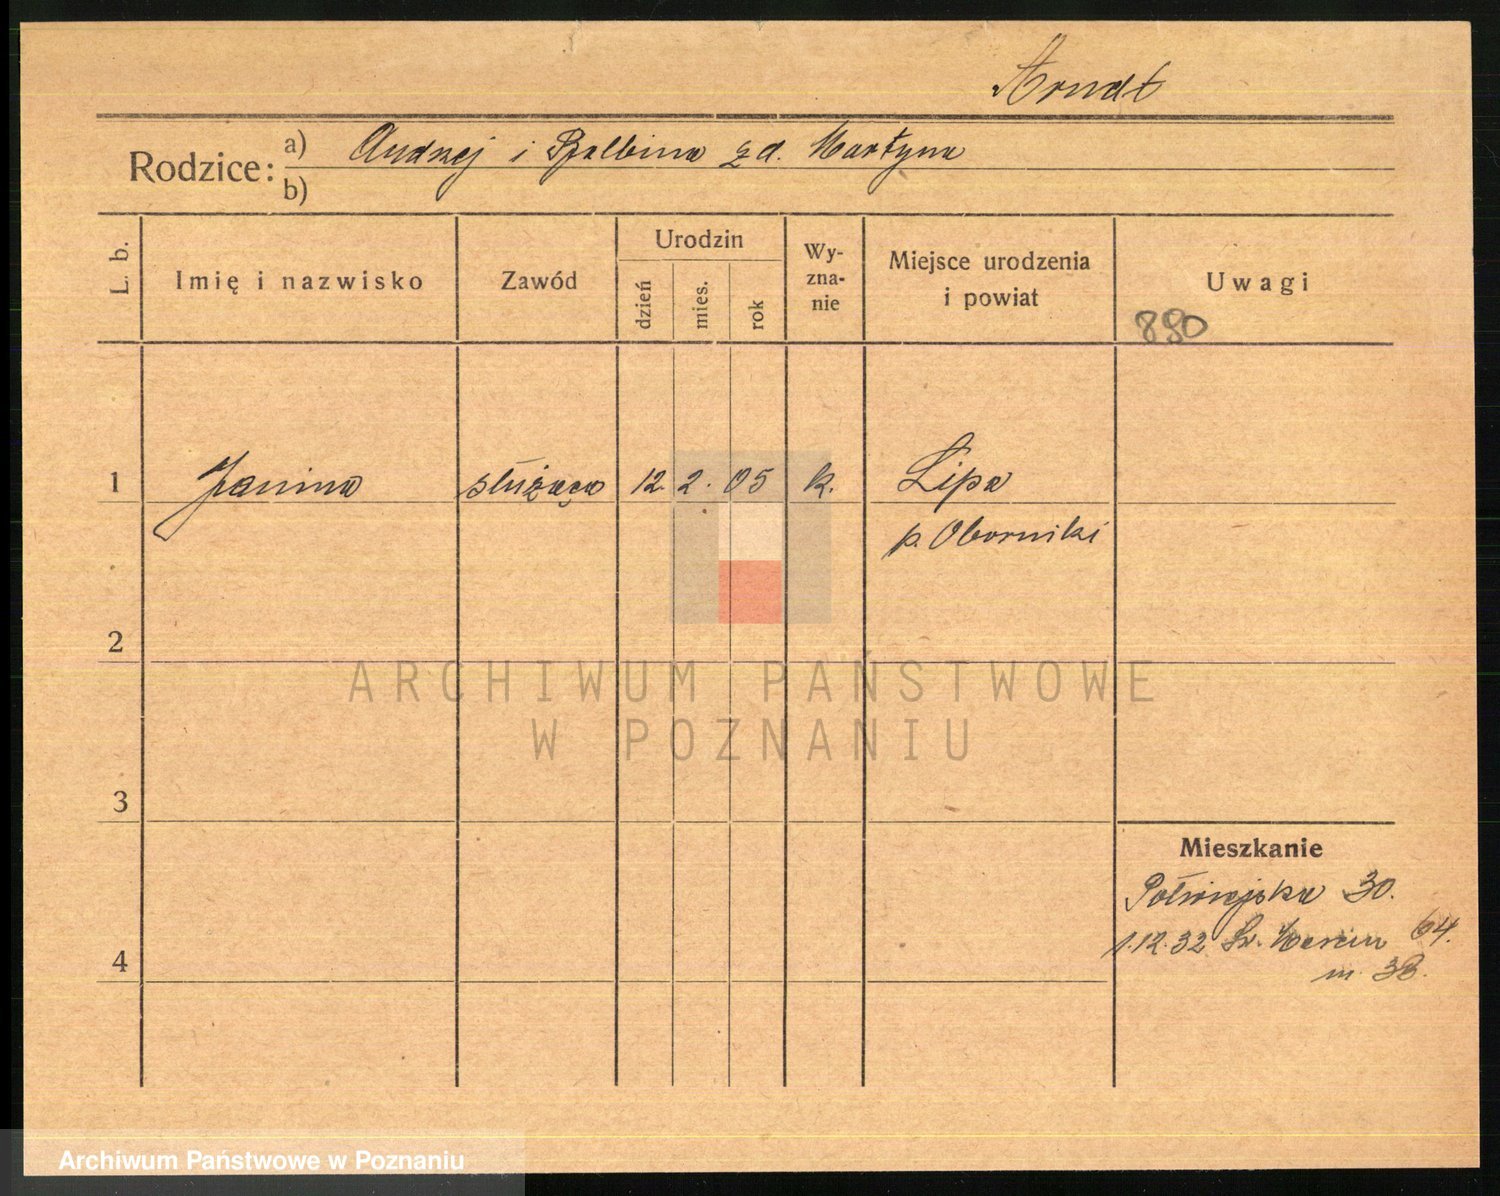 Arndt
Rodzice: a) Andrzej i Balbina z d. Martyna
b)
L. b.
Imię i nazwisko
Zawód
Urodzin
dzień
mies.
rok
Wy-
zna-
nie
Miejsce urodzenia
i powiat
Uwagi
890
1 Janina służąca 12. 2. 05 k. Lipa
p. Oborniki
2
3
4
Mieszkanie
Półwiejska 30.
1.12.32 Św. Marcin 64.
m. 38.
ARCHIWUM PAŃSTWOWE
W POZNANIU
Archiwum Państwowe w Poznaniu